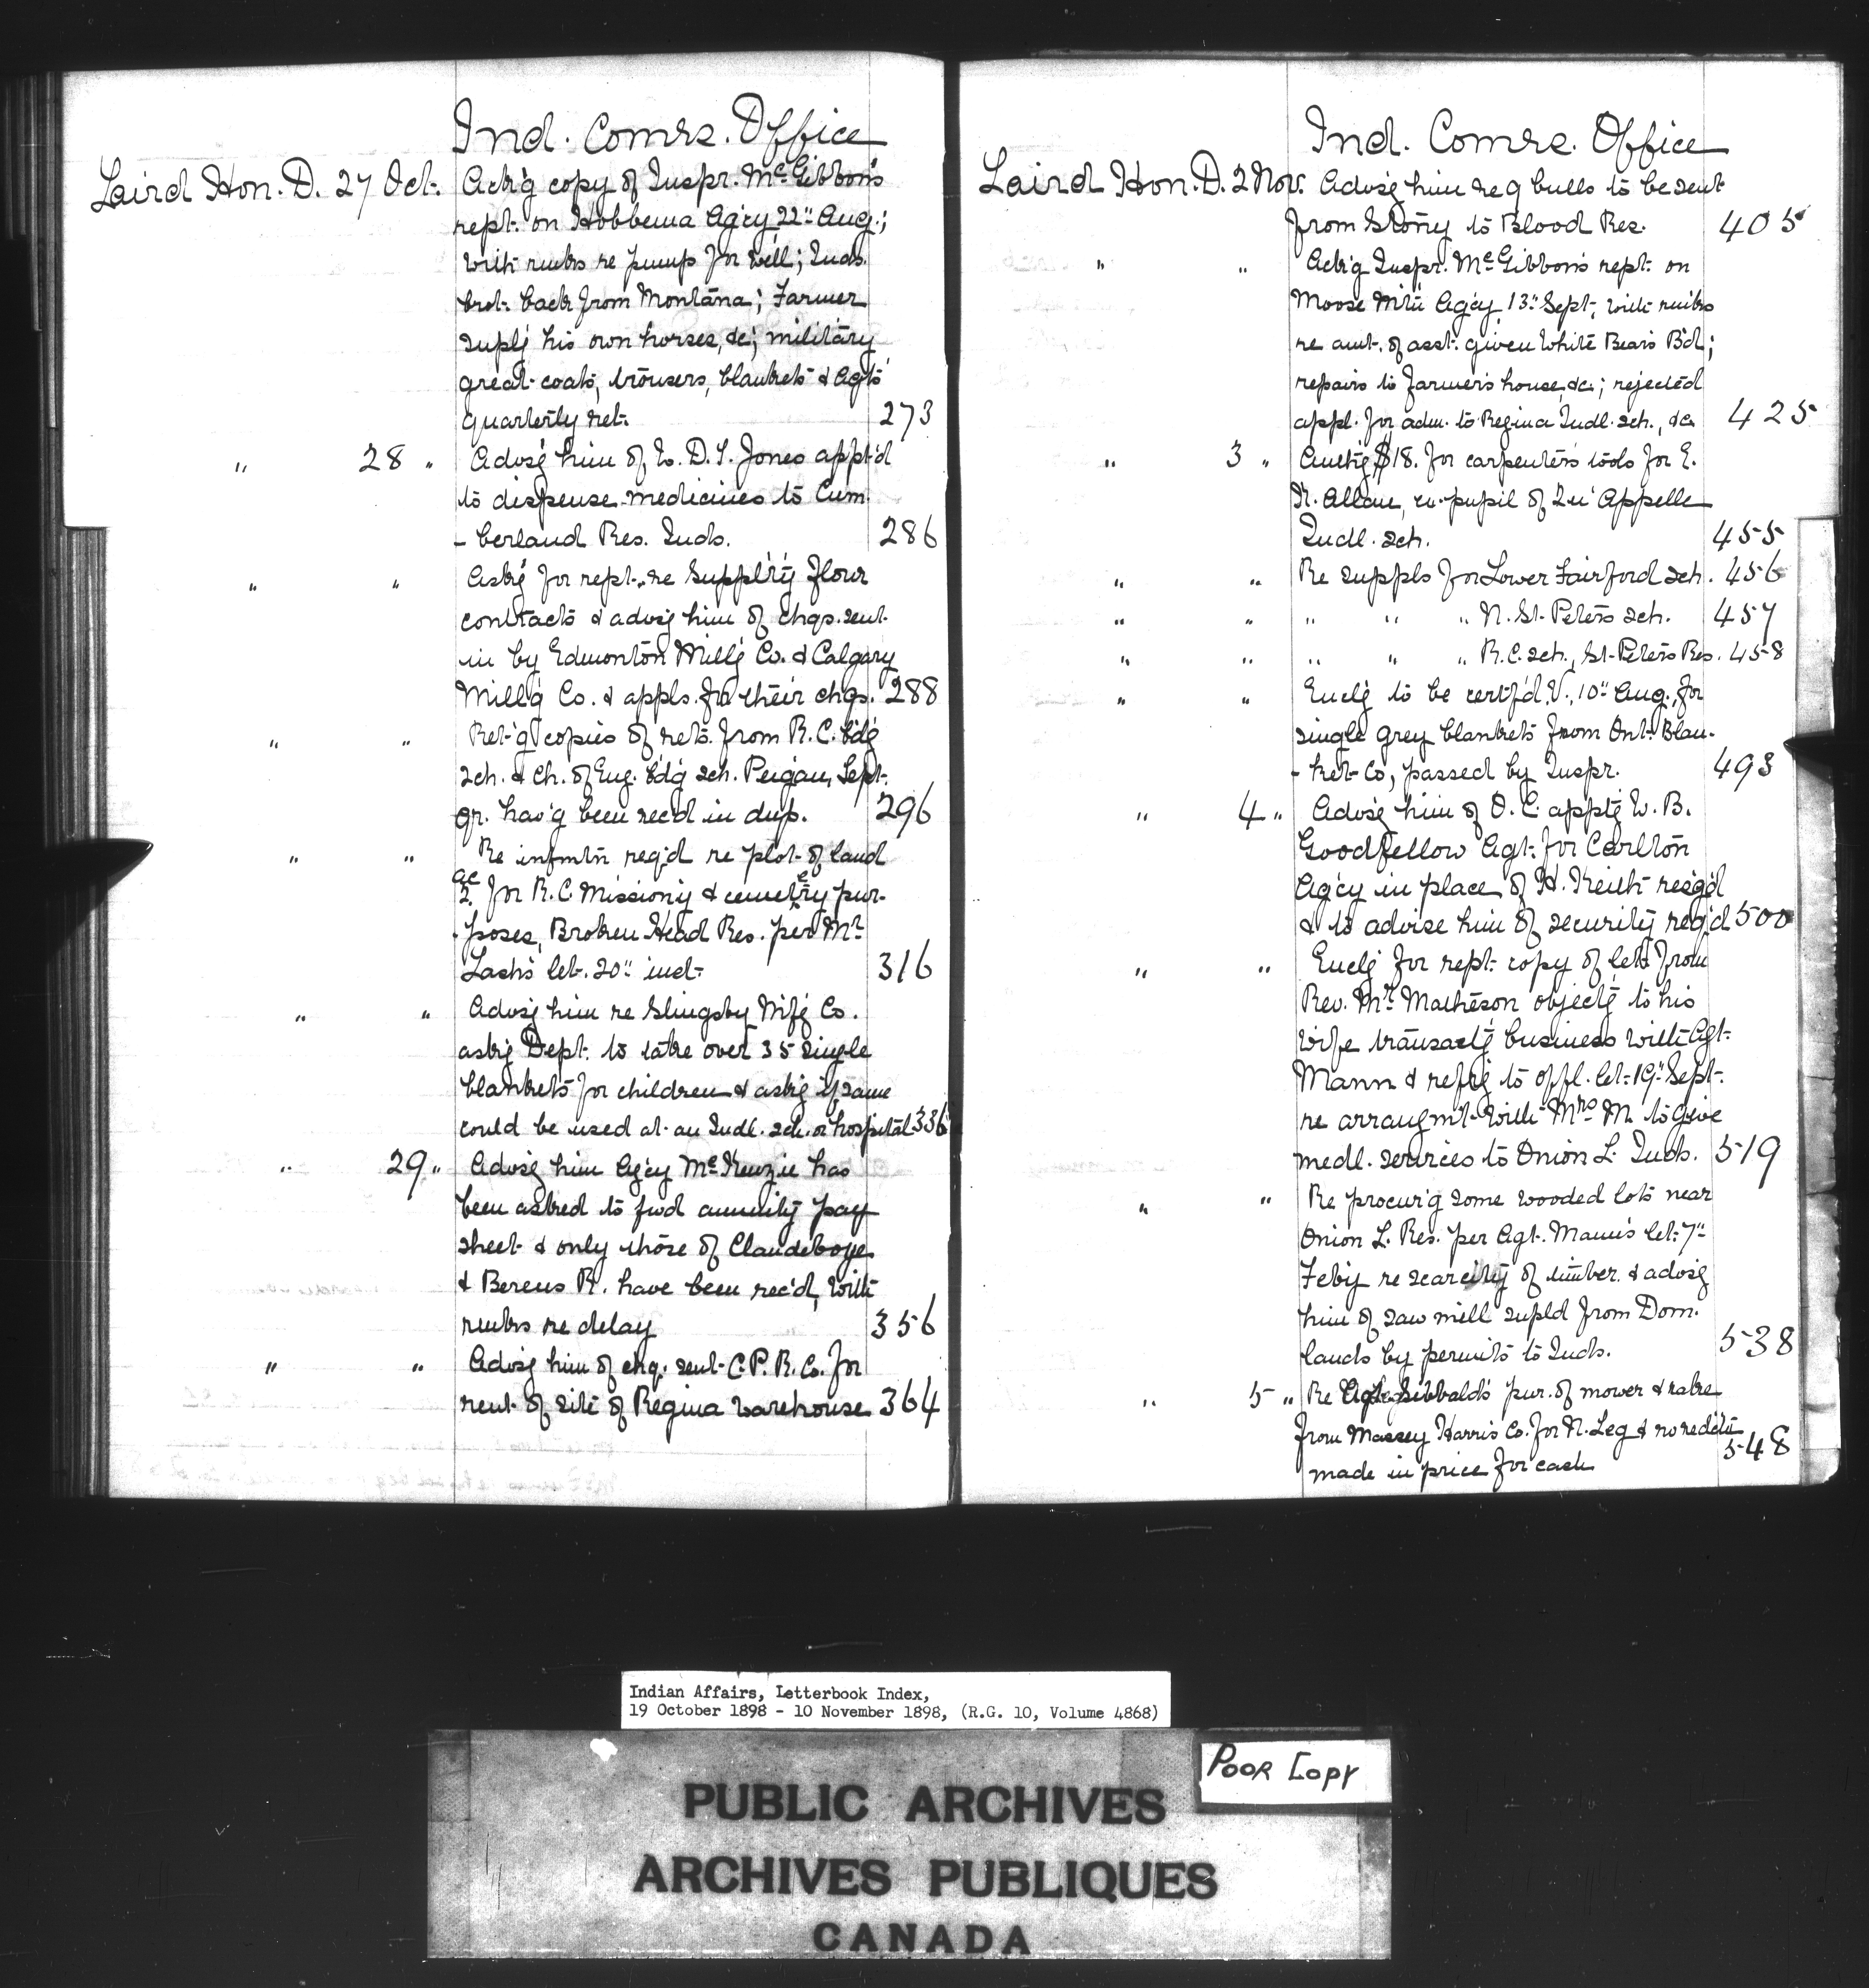 Ind. Comrs. Office
Laird Hon. D. 27 Oct. Ackg copy of Inspr. McGibbon's
rept. on Hobbema Agcy 22" Aug.;
with rmks re pump for well; Inds.
brot. back from Montana; Farmer
suplg his own horses, &c; military
great-coats, trousers, blankets & Agts
quarterly ret. 273
" 28 " Advsg him of W. D. S. Jones appt'd
to dispense medicines to Cum-
-berland Res. Inds. 286
" " Askg for rept. re supplyg flour
contracts & advsg him of chqs. sent
in by Edmonton Millg Co. & Calgary
Mill'g Co. & appls. for their chqs. 288
" " Ret'g copies of rets. from R.C. bdg
sch. & Ch. of Eng. bdg sch. Peigan, Sept.
qr. hav'g been rec'd in dup. 296
" " Re infmtn req'd re plot of land
2 ac for R.C. Missiony & cemetery pur-
-poses, Broken Head Res. per Mr
Lash's let. 20" inst. 316
" " Advsg him re Slingsby Mfg Co.
askg Dept. to take over 35 single
blankets for children & askg if same
could be used at an Indl. sch. or hospital 336
" 29 " Advsg him Agcy McKenzie has
been asked to fwd annuity pay
sheet & only those of Clandeboye
& Berens R. have been rec'd, with
rmks re delay 356
" " Advsg him of chq. sent C.P.R. Co. for
rent of site of Regina warehouse 364
Ind. Comrs. Office
Laird Hon. D. 2 Nov. Advsg him re 9 bulls to be sent
from Stony to Blood Res. 405
" " Ackg Inspr. McGibbon's rept. on
Moose Mtn Agcy 13" Sept., with rmks
re amt. of asst. given White Bear's Bd.;
repairs to farmer's house, &c.; rejected
appl. for adm. to Regina Indl. sch., &c. 425
" 3 " Authg $18. for carpenter's tools for E.
R. Allan, ex-pupil of Qu'Appelle
Indl. sch. 455
" " Re suppls for Lower Fairford sch. 456
" " " " " N. St. Peter's sch. 457
" " " " " R.C. sch., St. Peter's Res. 458
" " Enclg to be certf'd V., 10" Aug., for
single grey blankets from Ont. Blan-
-ket Co, passed by Inspr. 493
" 4 " Advsg him of O. C. apptg W. B.
Goodfellow Agt. for Carlton
Agcy in place of H. Keith resg'd
& to advise him of security req'd 500
" " Enclg for rept. copy of let. from
Rev. Mr. Matheson objectg to his
wife transactg business with Agt.
Mann & refrg to offl. let. 19" Sept.
re arrangmt. with Mrs M. to give
medl. services to Onion L. Inds. 519
" " Re procur'g some wooded lots near
Onion L. Res. per Agt. Mann's let. 7"
Feby re scarcity of timber. & advsg
him of saw mill supld from Dom.
lands by permits to Inds. 538
" 5 " Re Agt. Sibbald's pur. of mower & rake
from Massey Harris Co. for N. Leg & no redctn
made in price for cash 548
Indian Affairs, Letterbook Index,
19 October 1898 - 10 November 1898, (R.G. 10, Volume 4868)
POOR COPY
PUBLIC ARCHIVES
ARCHIVES PUBLIQUES
CANADA